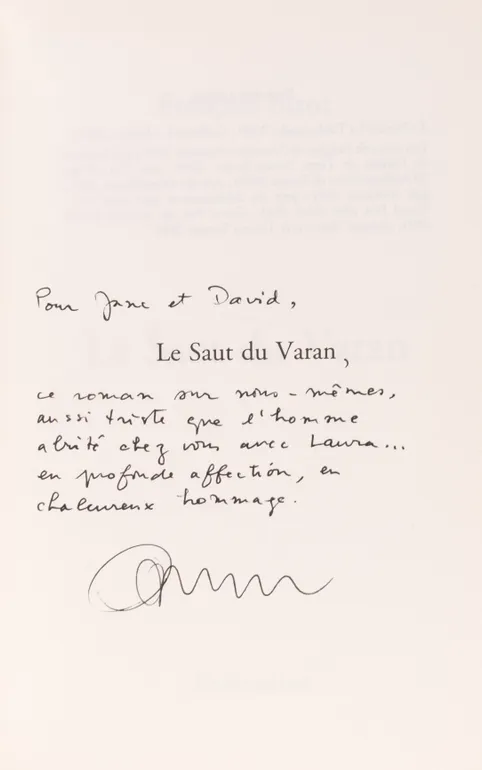 Pour Jane et David,
Le Saut du Varan,
ce roman sur nous-mêmes,
aussi triste que l'homme
abrité chez vous avec Laura...
en profonde affection, en
chaleureux hommage.